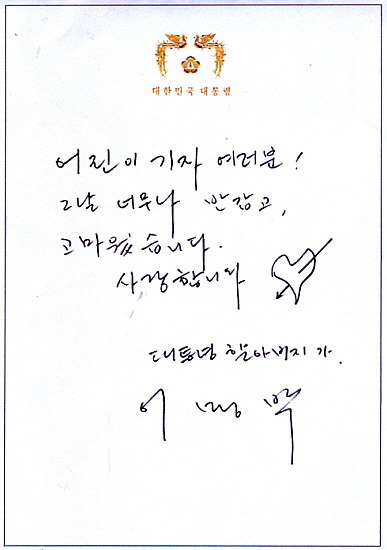 대한민국 대통령
어린이 기자 여러분!
그날 너무나 반갑고,
고마웠습니다.
사랑합니다
대통령 할아버지가.
이명박